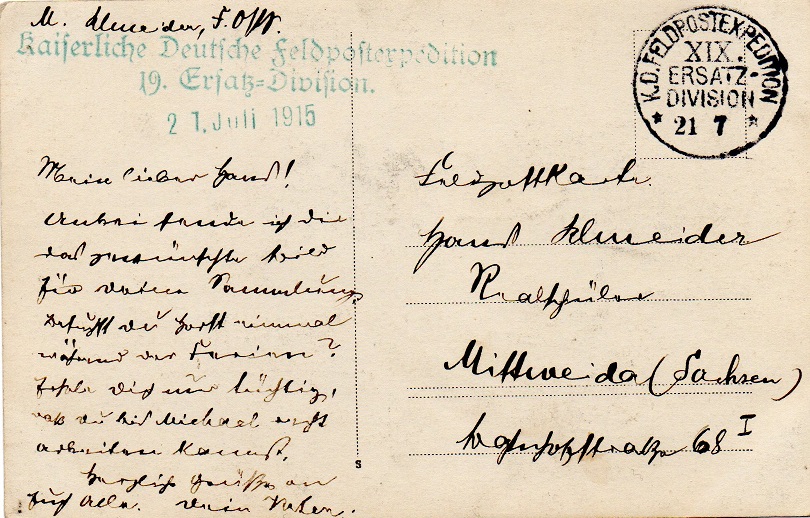 M. Schneider, F. Offz.
Kaiserliche Deutsche Feldpostexpedition
19. Ersatz=Division.
21. Juli 1915
K.D. FELDPOSTEXPEDITION
XIX.
ERSATZ-
DIVISION
* 21 7 *
Mein lieber Hans!
Anbei sende ich dir
das gewünschte Bild
für deine Sammlung.
Besuchst du Horst einmal
während der Ferien?
Erhole dich nur tüchtig,
daß du bis Michael
arbeiten kannst.
Herzliche Grüße an
Euch alle. Dein Vater.
S
Feldpostkarte.
Hans Schneider
Realschüler
Mittweida (Sachsen)
Bahnhofstraße 68 I